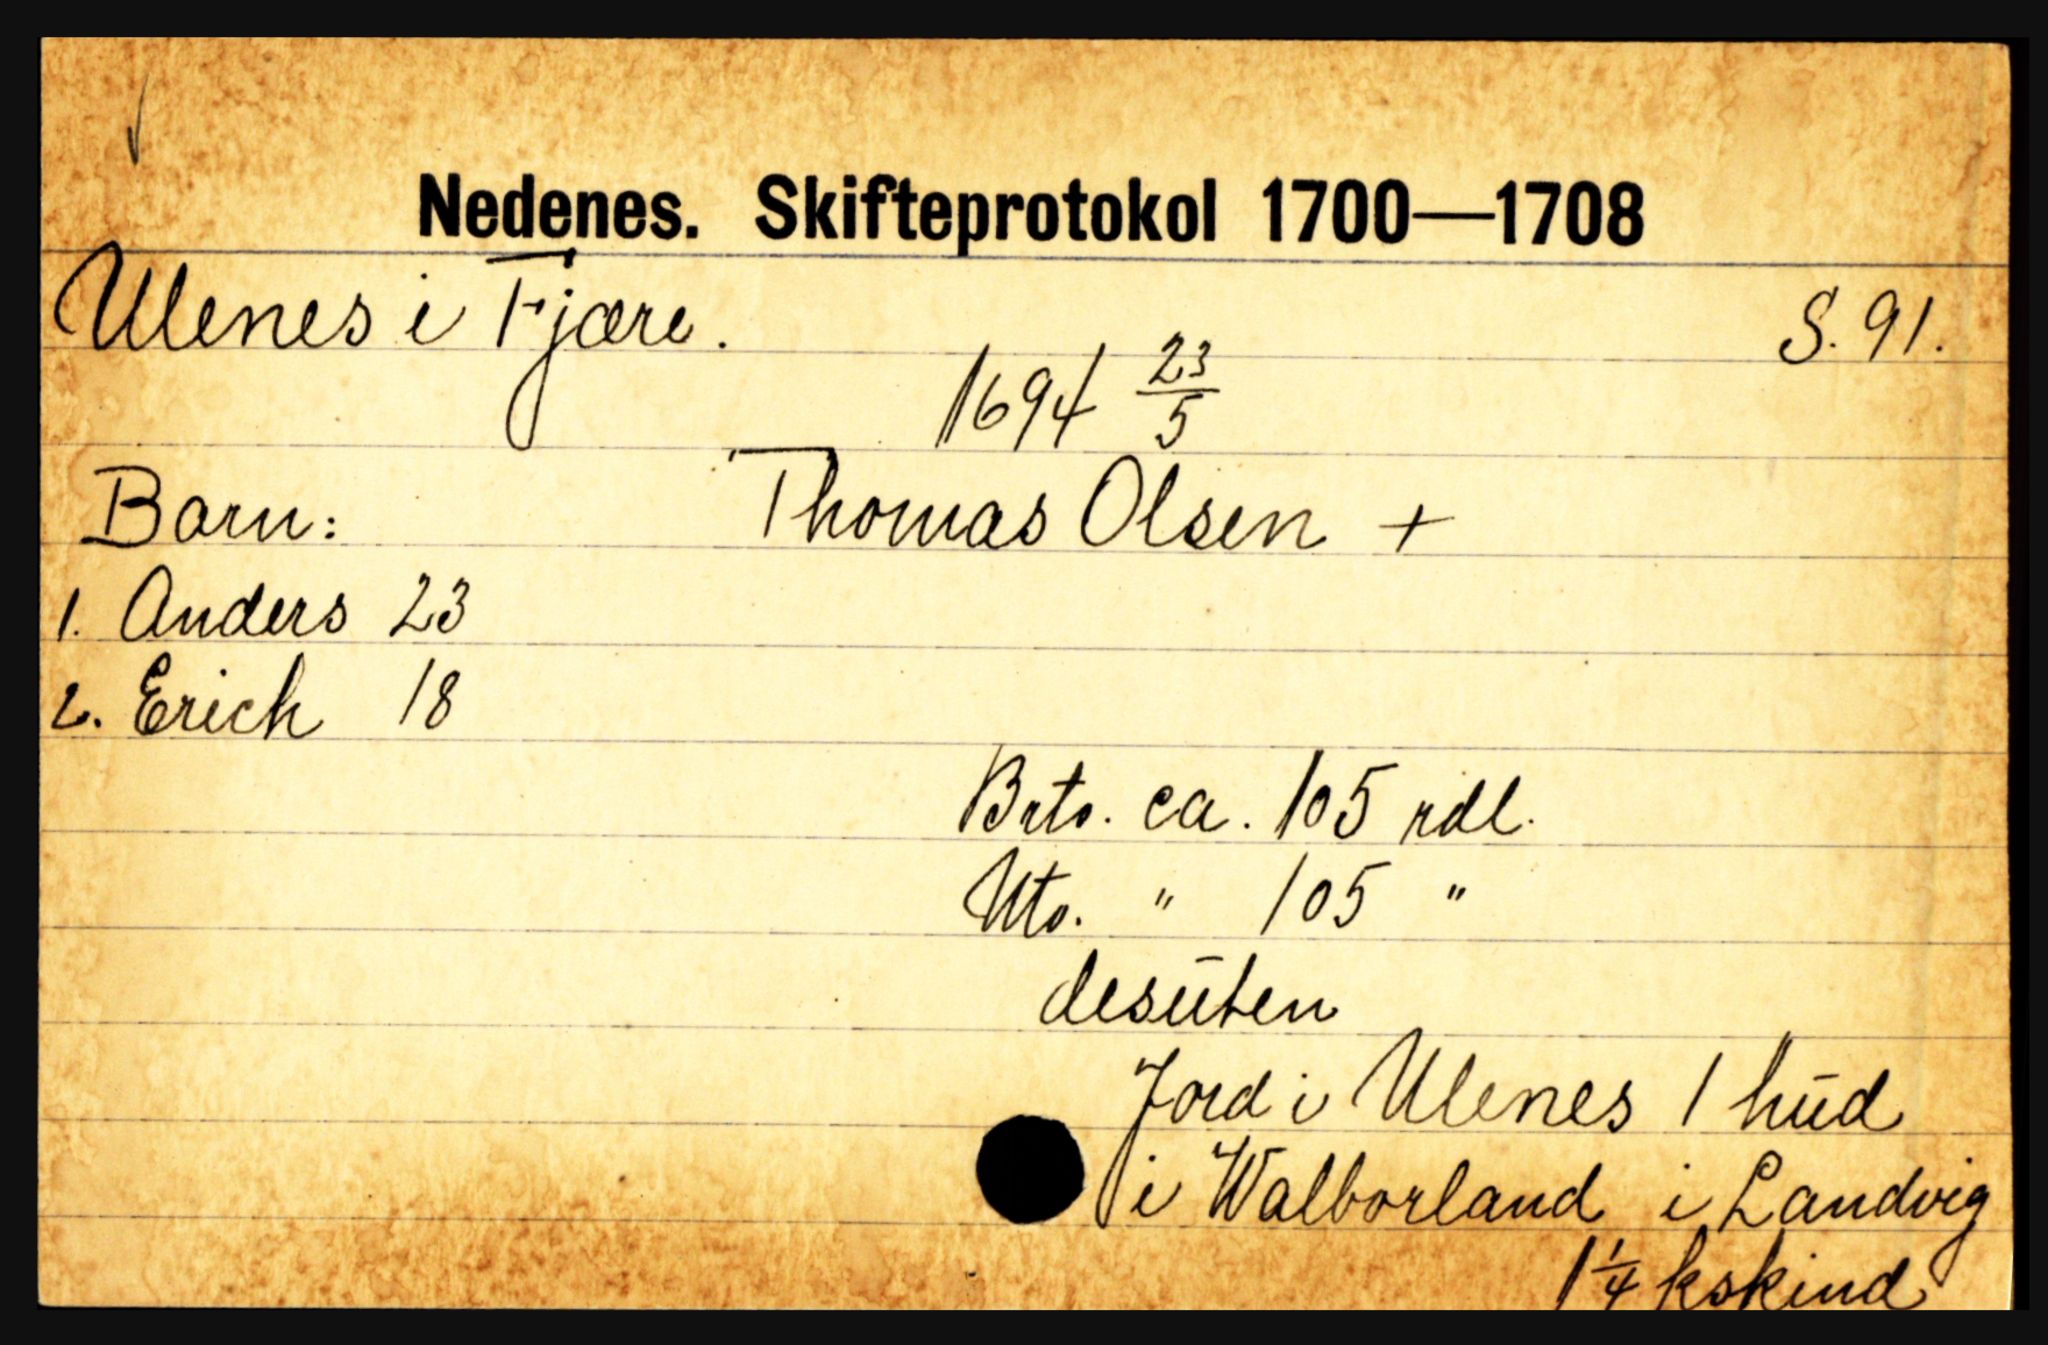 Nedenes. Skifteprotokol 1700—1708
Ulenes i Fjære. S. 91.
1694 23/5
Barn: Thomas Olsen +
1. Anders 23
2. Erich 18
Brto. ca. 105 rdl.
Nto. " 105 "
desūten
Jord i Ulenes 1 hūd
i Walborland i Landvig
1 1/4 kskind